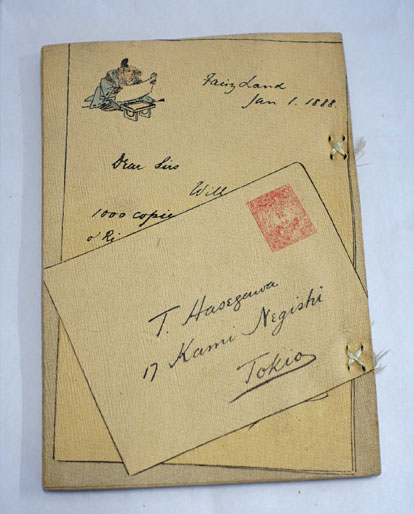 Fairy Land
Jan 1. 1888.
Dear Sirs
Will
1000 copie
o' Ri
T. Hasegawa
17 Kami Negishi
Tokio